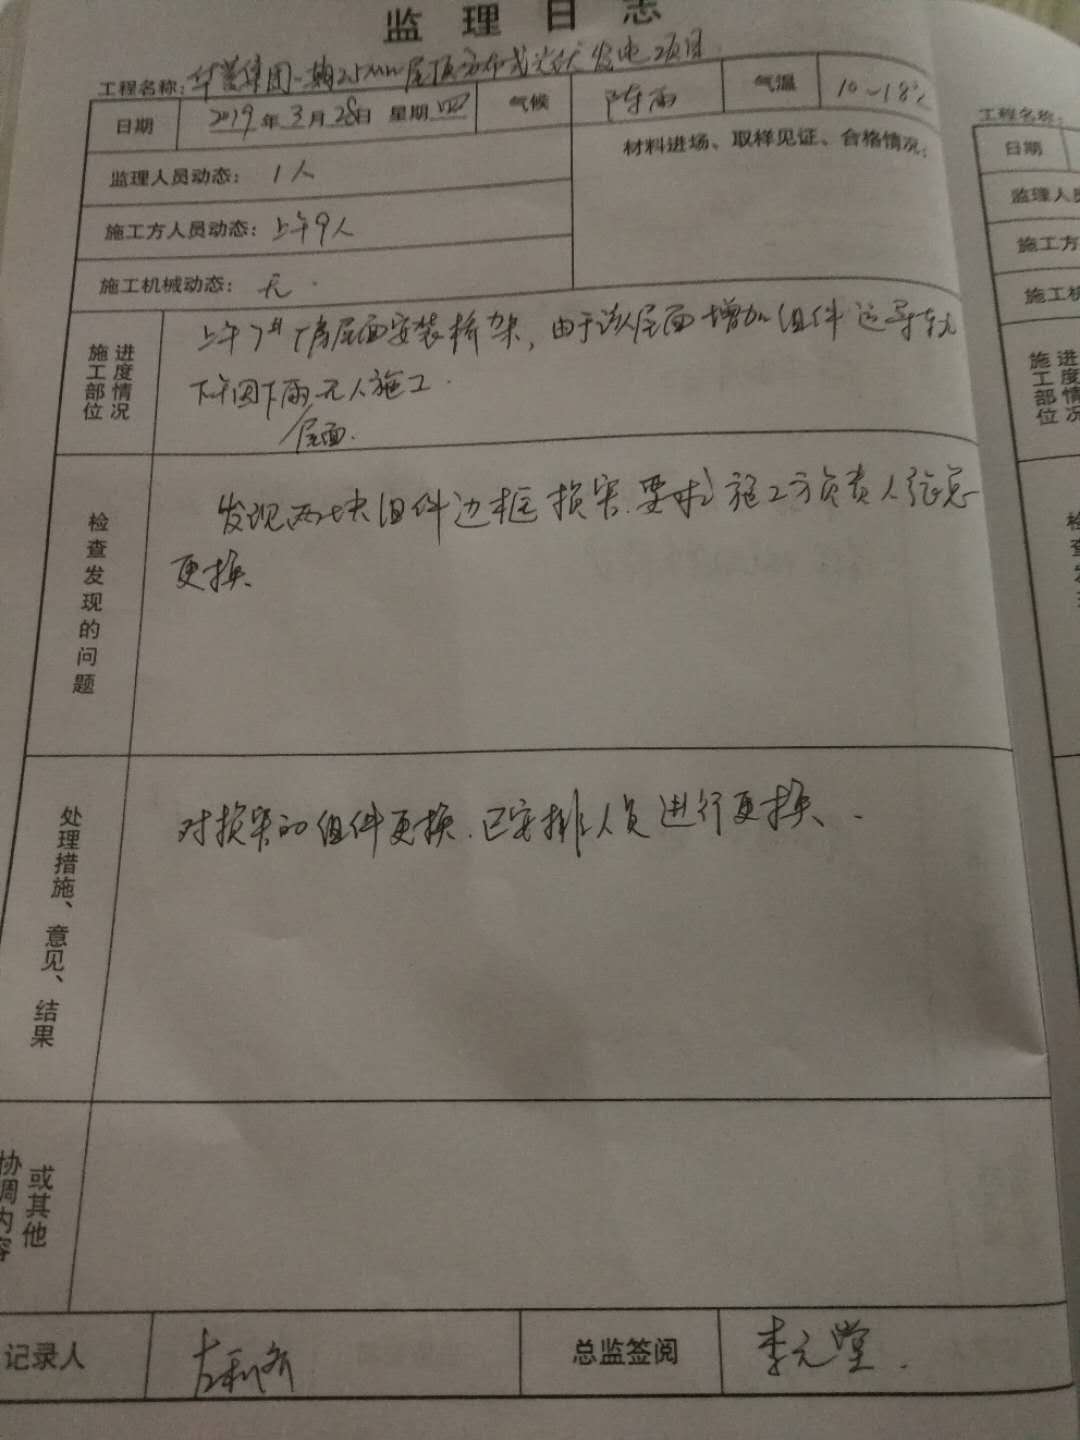 监理日志
工程名称：华誉集团一期2.5MW屋顶分布式光伏发电项目
日期 2019年3月28日 星期四 气候 阵雨 气温 10~18℃
监理人员动态：1人 材料进场、取样见证、合格情况：
施工方人员动态：上午9人
施工机械动态：无.
施工部位进度情况
上午7#厂房屋面安装桥架，由于该屋面增加组件运导轨
下午因下雨无人施工.
屋面.
检查发现的问题
发现两块组件边框损害.要求施工方负责人张总
更换.
处理措施、意见、结果
对损害的组件更换.已安排人员进行更换.
协调内容
或其他
记录人 总监签阅 李元堂.
工程名称：
日期
监理人员
施工方
施工机
施工部位进度情况
检查发